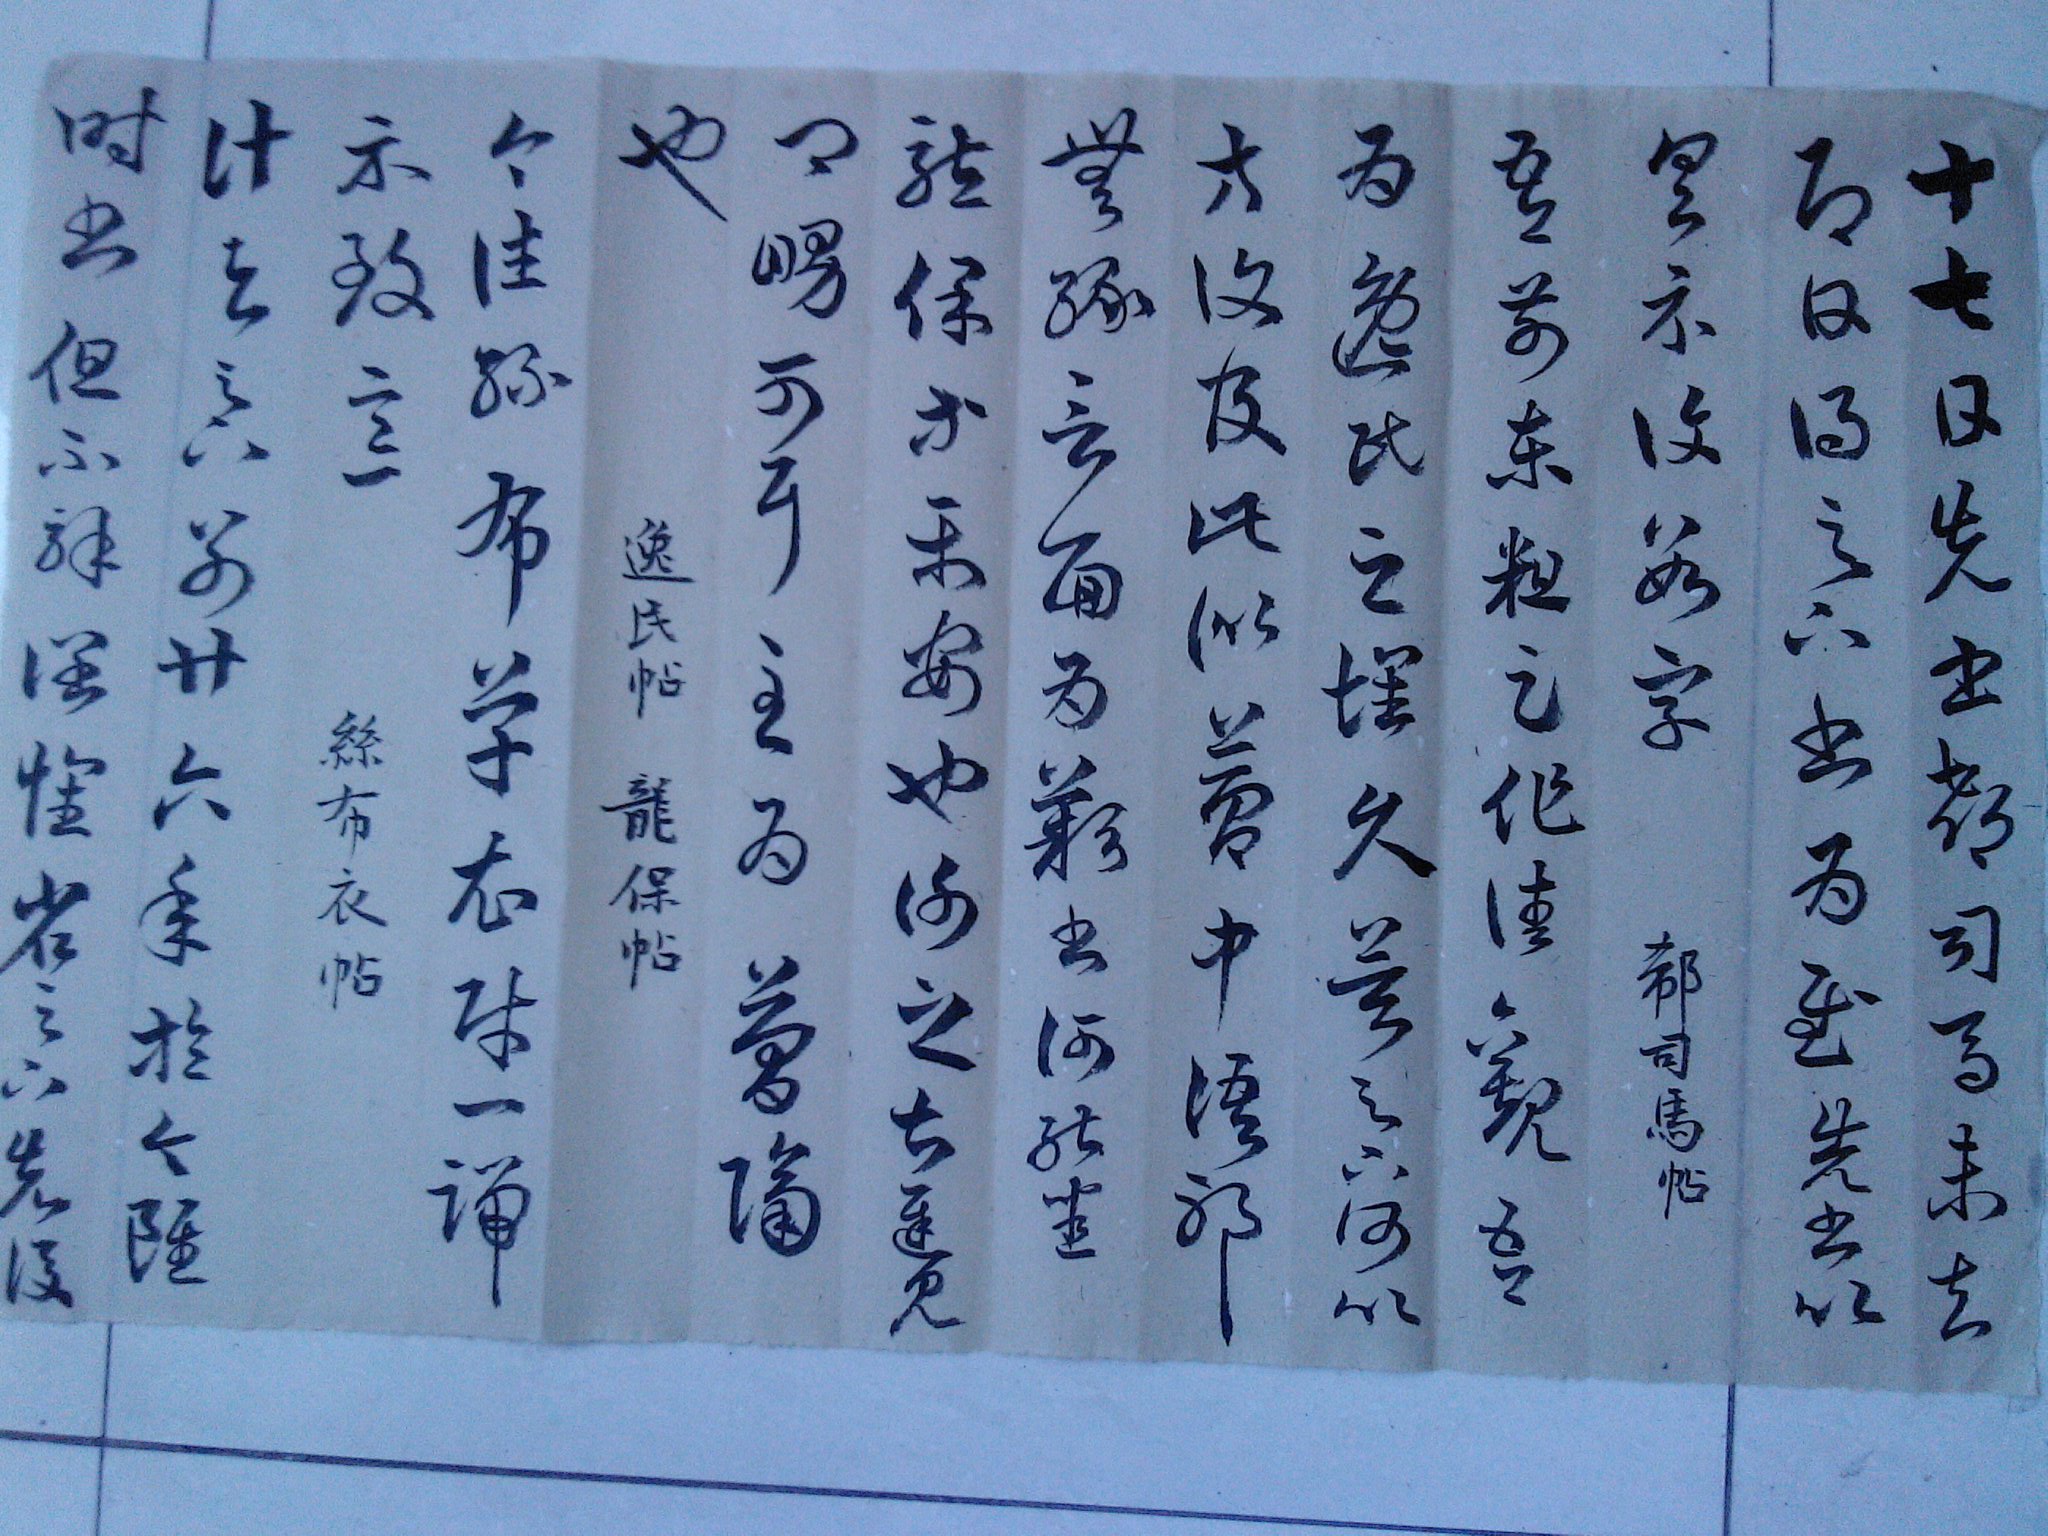 十七日先書郗司馬未去
即日得足下書為慰先書以
具示復數字 郗司馬帖
吾前東粗足作佳觀吾
為逸民之懷久矣足下何以
方復及此似夢中語耶
無緣言面為歎書何能悉
龍保等平安也謝之甚遲見
卿舅可耳至為簡隔
也 逸民帖 龍保帖
今往絲布單衣財一端
示致意 絲布衣帖
計與足下別廿六年於今雖
時書但不解闊懷省足下先後